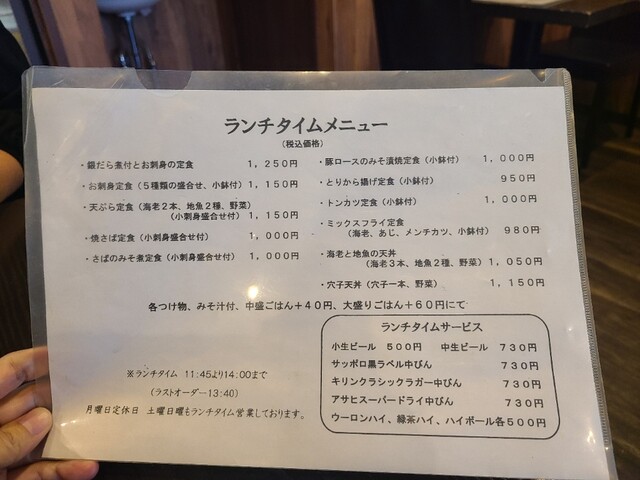 ランチタイムメニュー
(税込価格)
・銀だら煮付とお刺身の定食 1,250円
・お刺身定食(5種類の盛合せ、小鉢付) 1,150円
・天ぷら定食(海老2本、地魚2種、野菜)
(小刺身盛合せ付) 1,150円
・焼さば定食(小刺身盛合せ付) 1,000円
・さばのみそ煮定食(小刺身盛合せ付) 1,000円
・豚ロースのみそ漬焼定食(小鉢付) 1,000円
・とりから揚げ定食(小鉢付) 950円
・トンカツ定食(小鉢付) 1,000円
・ミックスフライ定食
(海老、あじ、メンチカツ、小鉢付) 980円
・海老と地魚の天丼
(海老3本、地魚2種、野菜) 1,050円
・穴子天丼(穴子一本、野菜) 1,150円
各つけ物、みそ汁付、中盛ごはん+40円、大盛りごはん+60円にて
※ランチタイム 11:45より14:00まで
(ラストオーダー13:40)
月曜日定休日 土曜日曜もランチタイム営業しております。
ランチタイムサービス
小生ビール 500円 中生ビール 730円
サッポロ黒ラベル中びん 730円
キリンクラシックラガー中びん 730円
アサヒスーパードライ中びん 730円
ウーロンハイ、緑茶ハイ、ハイボール各500円